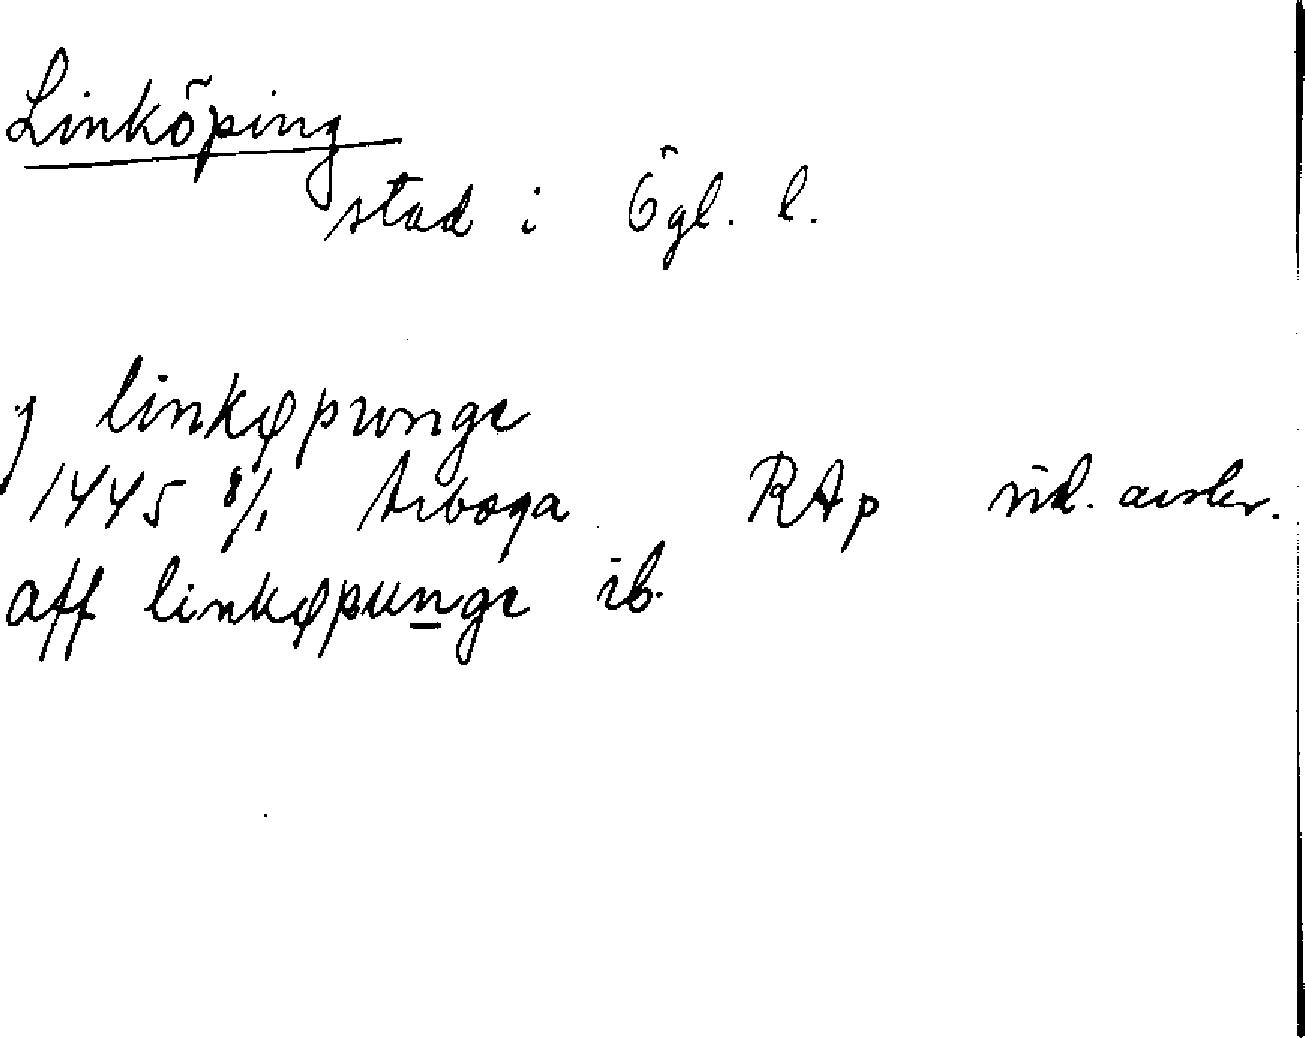 Linköping
stad i Ögl. l.
j linkøpunge
1445 8/1 Arboga RAp vid. avskr.
aff linkøpunge ib.